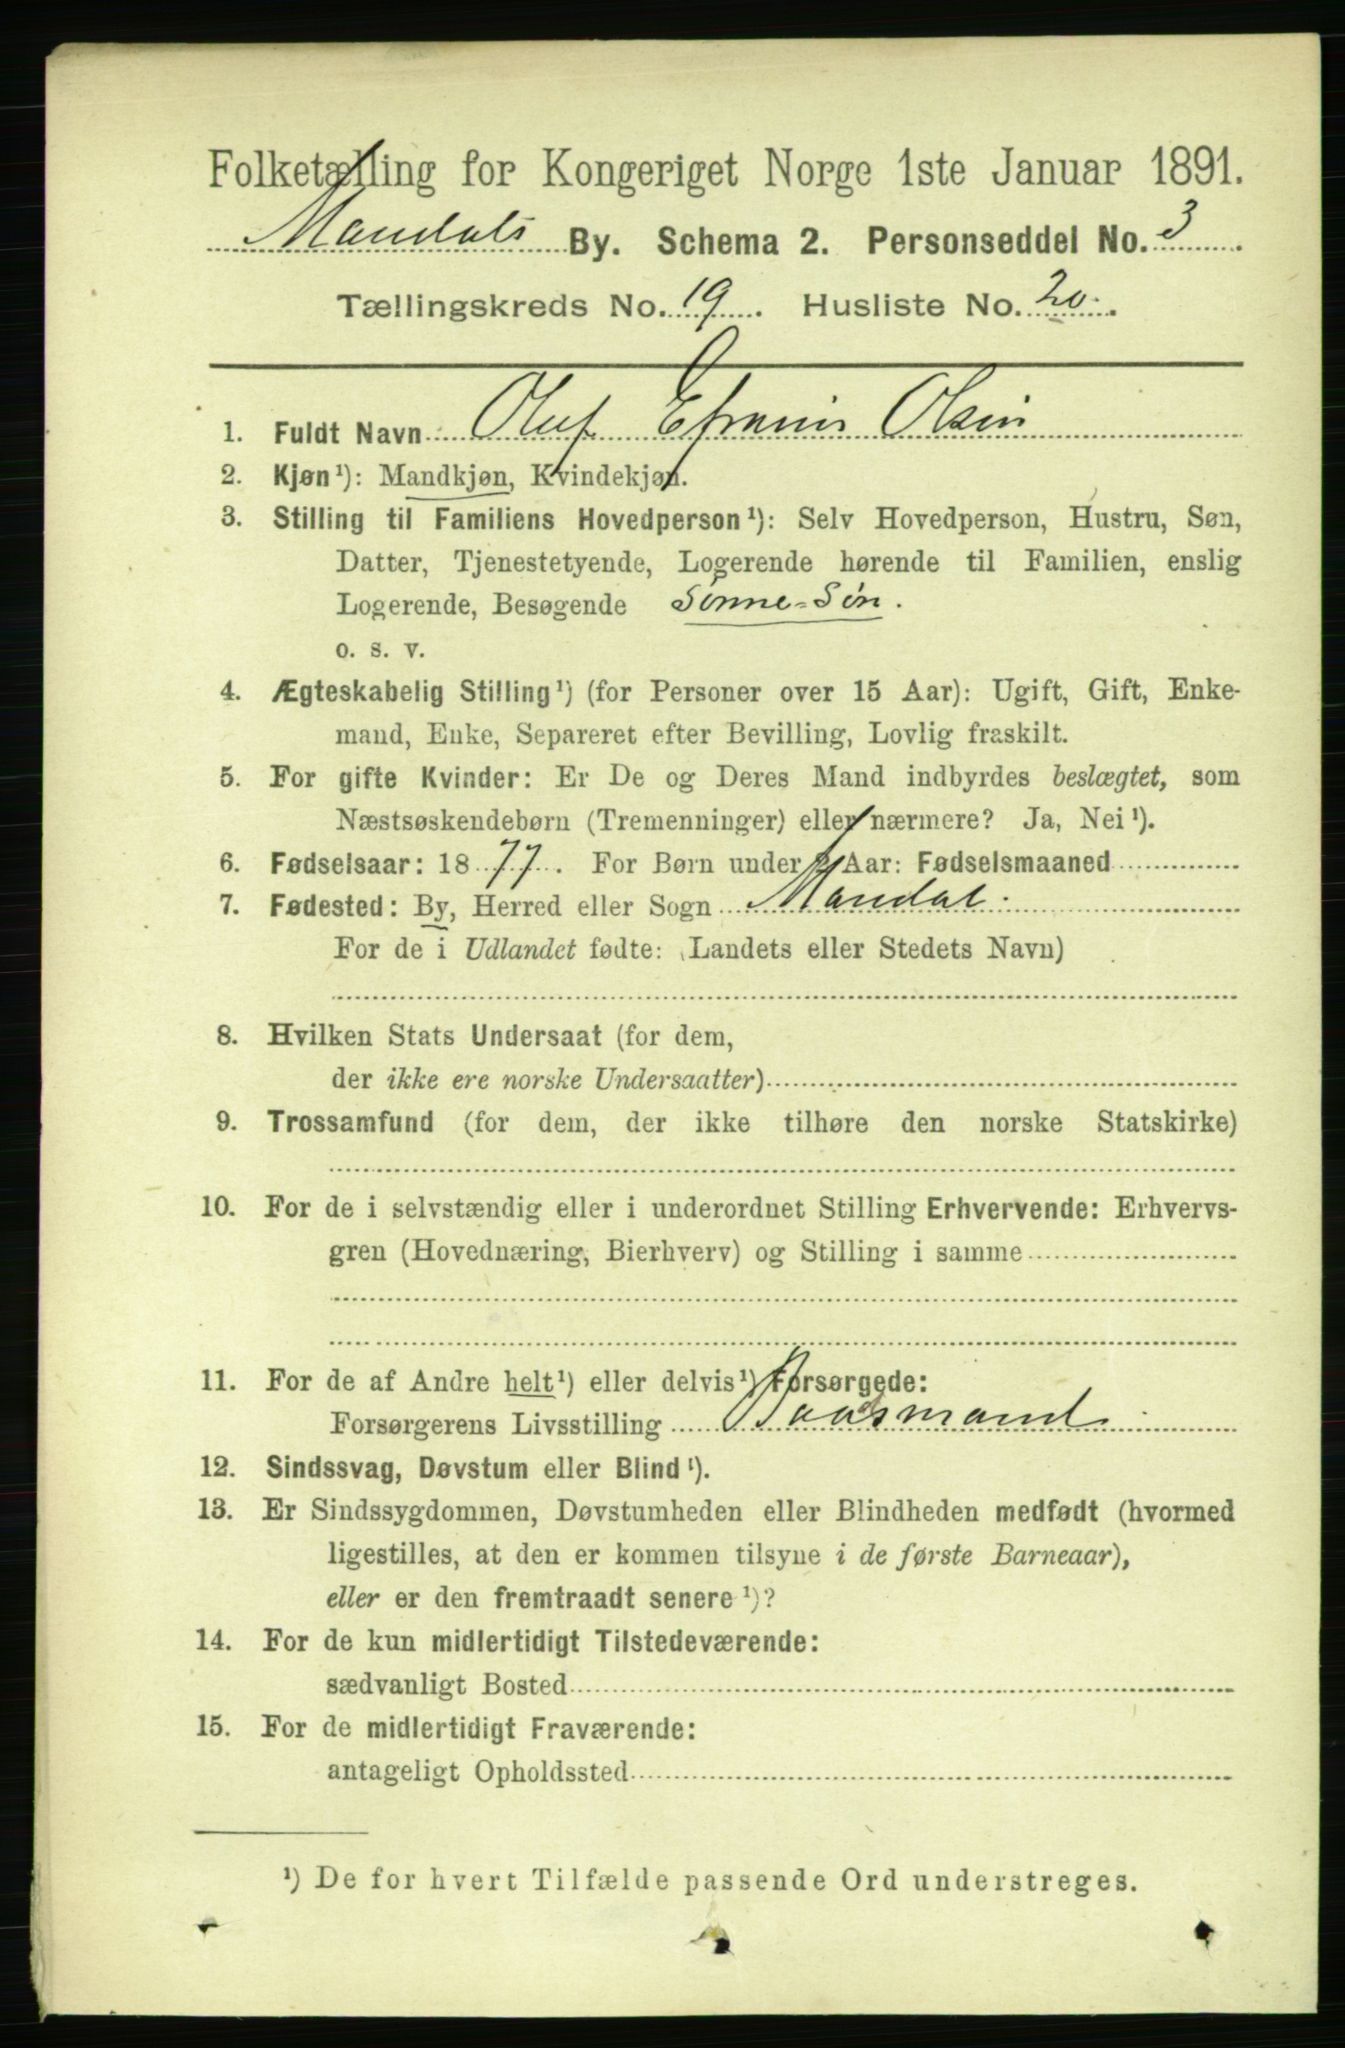 Folketælling for Kongeriget Norge 1ste Januar 1891.
Mandals By. Schema 2. Personseddel No. 3.
Tællingskreds No. 19. Husliste No. 20.
1. Fuldt Navn Oluf Efraim Olsen
2. Kjøn¹): Mandkjøn, Kvindekjøn.
3. Stilling til Familiens Hovedperson¹): Selv Hovedperson, Hustru, Søn,
Datter, Tjenestetyende, Logerende hørende til Familien, enslig
Logerende, Besøgende Sønne-Søn.
o. s. v.
4. Ægteskabelig Stilling¹) (for Personer over 15 Aar): Ugift, Gift, Enke-
mand, Enke, Separeret efter Bevilling, Lovlig fraskilt.
5. For gifte Kvinder: Er De og Deres Mand indbyrdes beslægtet, som
Næstsøskendebørn (Tremenninger) eller nærmere? Ja, Nei¹).
6. Fødselsaar: 1877. For Børn under 2 Aar: Fødselsmaaned
7. Fødested: By, Herred eller Sogn Mandal.
For de i Udlandet fødte: (Landets eller Stedets Navn)
8. Hvilken Stats Undersaat (for dem,
der ikke ere norske Undersaatter)
9. Trossamfund (for dem, der ikke tilhøre den norske Statskirke)
10. For de i selvstændig eller i underordnet Stilling Erhvervende: Erhvervs-
gren (Hovednæring, Bierhverv) og Stilling i samme
11. For de af Andre helt¹) eller delvis¹) Forsørgede:
Forsørgerens Livsstilling Baadsmand
12. Sindssvag, Døvstum eller Blind¹).
13. Er Sindssygdommen, Døvstumheden eller Blindheden medfødt (hvormed
ligestilles, at den er kommen tilsyne i de første Barneaar),
eller er den fremtraadt senere¹)?
14. For de kun midlertidigt Tilstedeværende:
sædvanligt Bosted
15. For de midlertidigt Fraværende:
antageligt Opholdssted
¹) De for hvert Tilfælde passende Ord understreges.